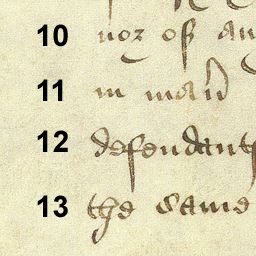 10 nor of an
11 in man
12 defendant
13 the same